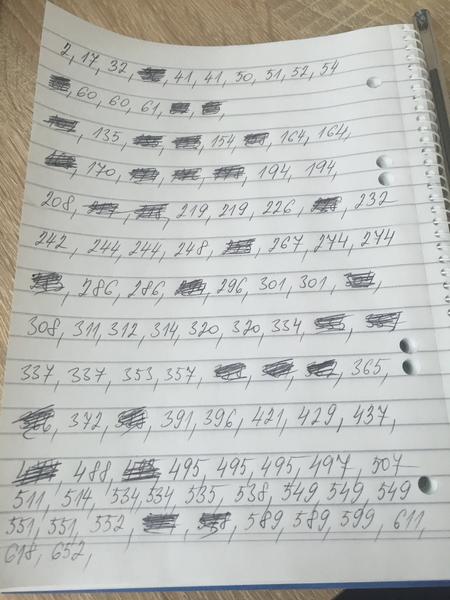 2, 17, 32, 41, 41, 50, 51, 52, 54
60, 60, 61,
135, 154, 164, 164,
170, 194, 194,
208, 219, 219, 226, 232
242, 244, 244, 248, 267, 274, 274
286, 286, 296, 301, 301,
308, 311, 312, 314, 320, 320, 334
337, 337, 353, 357, 365,
372, 391, 396, 421, 429, 437,
488, 495, 495, 495, 497, 507
511, 514, 534, 534, 535, 538, 549, 549, 549
551, 551, 552, 589, 589, 599, 611,
618, 652,